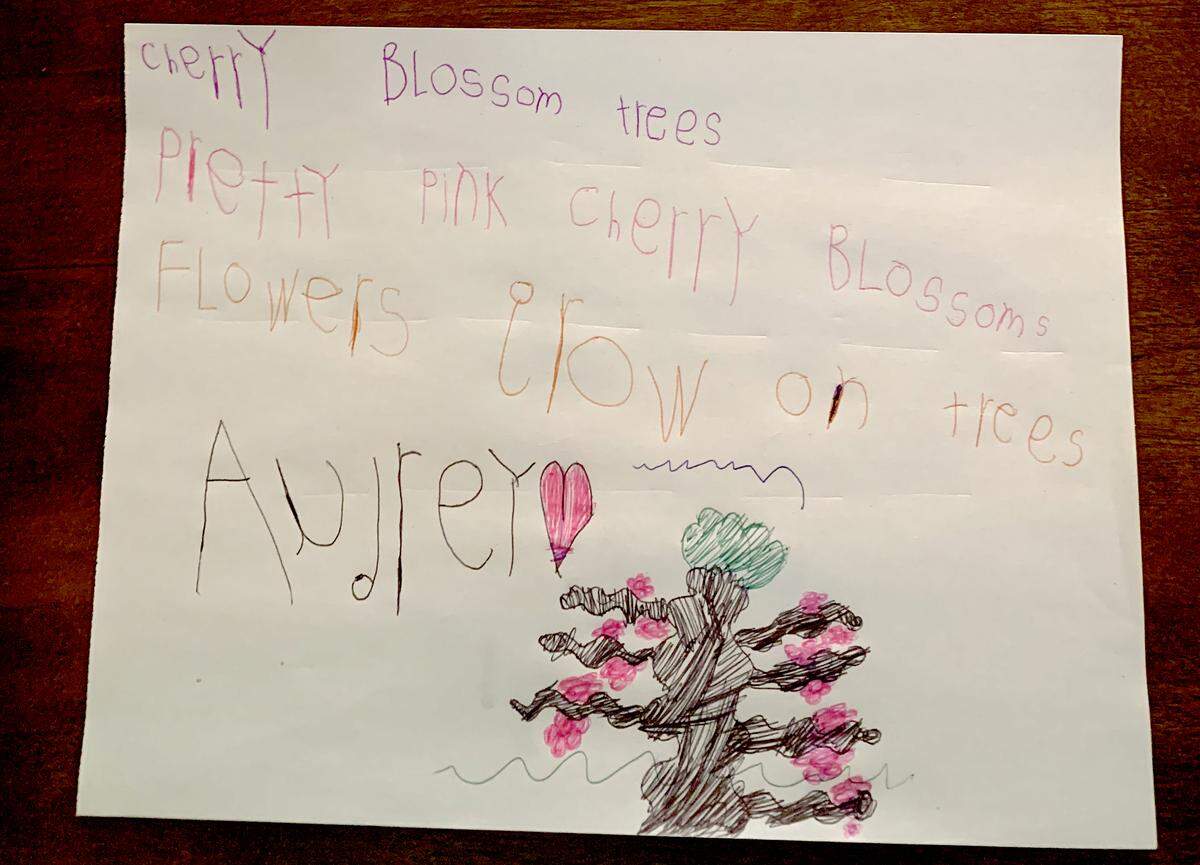 cherrY BLossom trees
PrettY PiNK cherrY BLossoms
FLowers Grow on trees
AudreY